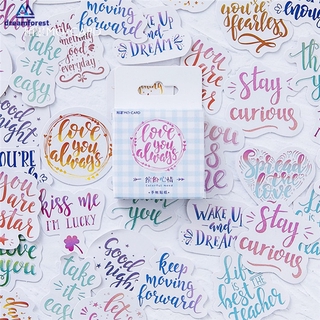 dreamforest
take
it
easy
something
good
everyday
moving
forward
WAKE UP
and
DREAM
you're
fearless
good
night
love
you
always
stay
curious
love
you
always
Spread
the
love
YOU'RE
you
are
star
kiss me
I'M LUCKY
love
you
WAKE UP
and
DREAM
stay
curious
you
are
star
take
it
easy
Good
night
keep
moving
forward
Life
is the
best
teacher